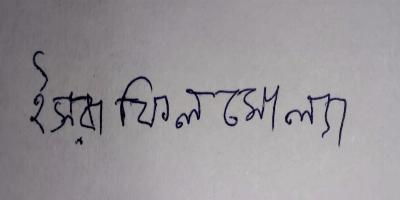 ইসরাফিল মোল্যা